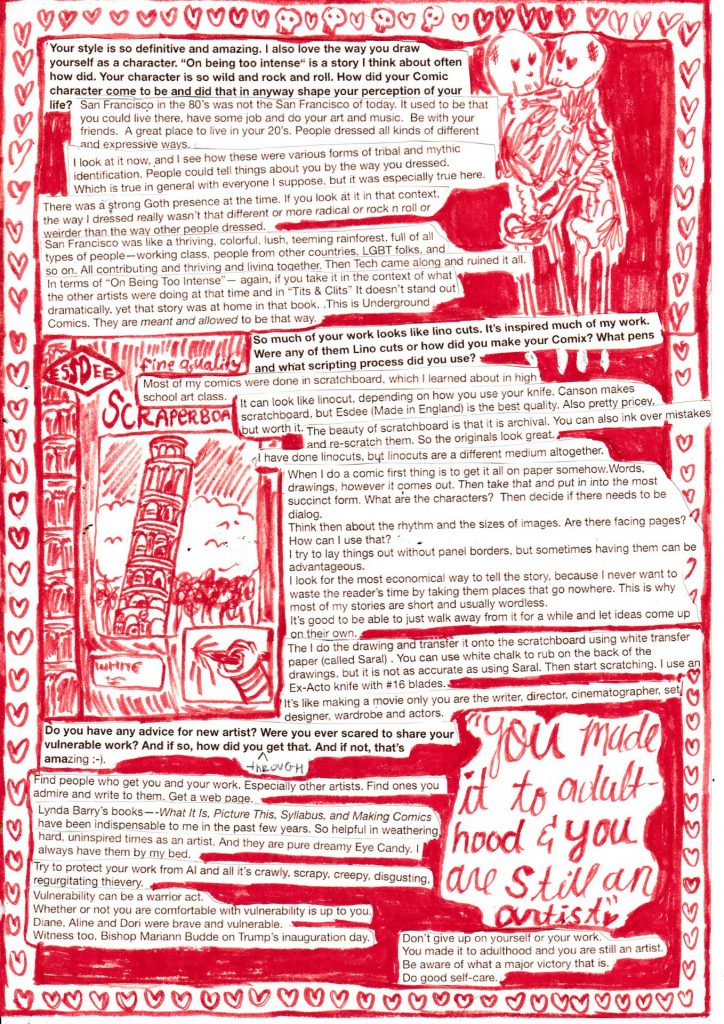 Your style is so definitive and amazing. I also love the way you draw
yourself as a character. "On being too intense" is a story I think about often
how did. Your character is so wild and rock and roll. How did your Comic
character come to be and did that in anyway shape your perception of your
life? San Francisco in the 80's was not the San Francisco of today. It used to be that
you could live there, have some job and do your art and music. Be with your
friends. A great place to live in your 20's. People dressed all kinds of different
and expressive ways.
I look at it now, and I see how these were various forms of tribal and mythic
identification. People could tell things about you by the way you dressed.
Which is true in general with everyone I suppose, but it was especially true here.
There was a strong Goth presence at the time. If you look at it in that context,
the way I dressed really wasn't that different or more radical or rock n roll or
weirder than the way other people dressed.
San Francisco was like a thriving, colorful, lush, teeming rainforest, full of all
types of people—working class, people from other countries, LGBT folks, and
so on. All contributing and thriving and living together. Then Tech came along and ruined it all.
In terms of "On Being Too Intense"— again, if you take it in the context of what
the other artists were doing at that time and in "Tits & Clits" It doesn't stand out
dramatically, yet that story was at home in that book. .This is Underground
Comics. They are meant and allowed to be that way.
So much of your work looks like lino cuts. It's inspired much of my work.
Were any of them Lino cuts or how did you make your Comix? What pens
and what scripting process did you use?
ESSDEE
fine quality
SCRAPERBOA
WHITE
Most of my comics were done in scratchboard, which I learned about in high
school art class.
It can look like linocut, depending on how you use your knife. Canson makes
scratchboard, but Esdee (Made in England) is the best quality. Also pretty pricey,
but worth it.
The beauty of scratchboard is that it is archival. You can also ink over mistakes
and re-scratch them. So the originals look great.
I have done linocuts, but linocuts are a different medium altogether.
When I do a comic first thing is to get it all on paper somehow.Words,
drawings, however it comes out. Then take that and put in into the most
succinct form. What are the characters? Then decide if there needs to be
dialog.
Think then about the rhythm and the sizes of images. Are there facing pages?
How can I use that?
I try to lay things out without panel borders, but sometimes having them can be
advantageous.
I look for the most economical way to tell the story, because I never want to
waste the reader's time by taking them places that go nowhere. This is why
most of my stories are short and usually wordless.
It's good to be able to just walk away from it for a while and let ideas come up
on their own.
The I do the drawing and transfer it onto the scratchboard using white transfer
paper (called Saral) . You can use white chalk to rub on the back of the
drawings, but it is not as accurate as using Saral. Then start scratching. I use an
Ex-Acto knife with #16 blades.
It's like making a movie only you are the writer, director, cinematographer, set
designer, wardrobe and actors.
Do you have any advice for new artist? Were you ever scared to share your
vulnerable work? And if so, how did you get that. And if not, that's
amazing :-).
THROUGH
Find people who get you and your work. Especially other artists. Find ones you
admire and write to them. Get a web page.
Lynda Barry's books—-What It Is, Picture This, Syllabus, and Making Comics
have been indispensable to me in the past few years. So helpful in weathering
hard, uninspired times as an artist. And they are pure dreamy Eye Candy. I
always have them by my bed.
Try to protect your work from AI and all it's crawly, scrapy, creepy, disgusting,
regurgitating thievery.
Vulnerability can be a warrior act.
Whether or not you are comfortable with vulnerability is up to you.
Diane, Aline and Dori were brave and vulnerable.
Witness too, Bishop Mariann Budde on Trump's inauguration day.
"you made
it to adult-
hood & you
are still an
artist"
Don't give up on yourself or your work.
You made it to adulthood and you are still an artist.
Be aware of what a major victory that is.
Do good self-care.